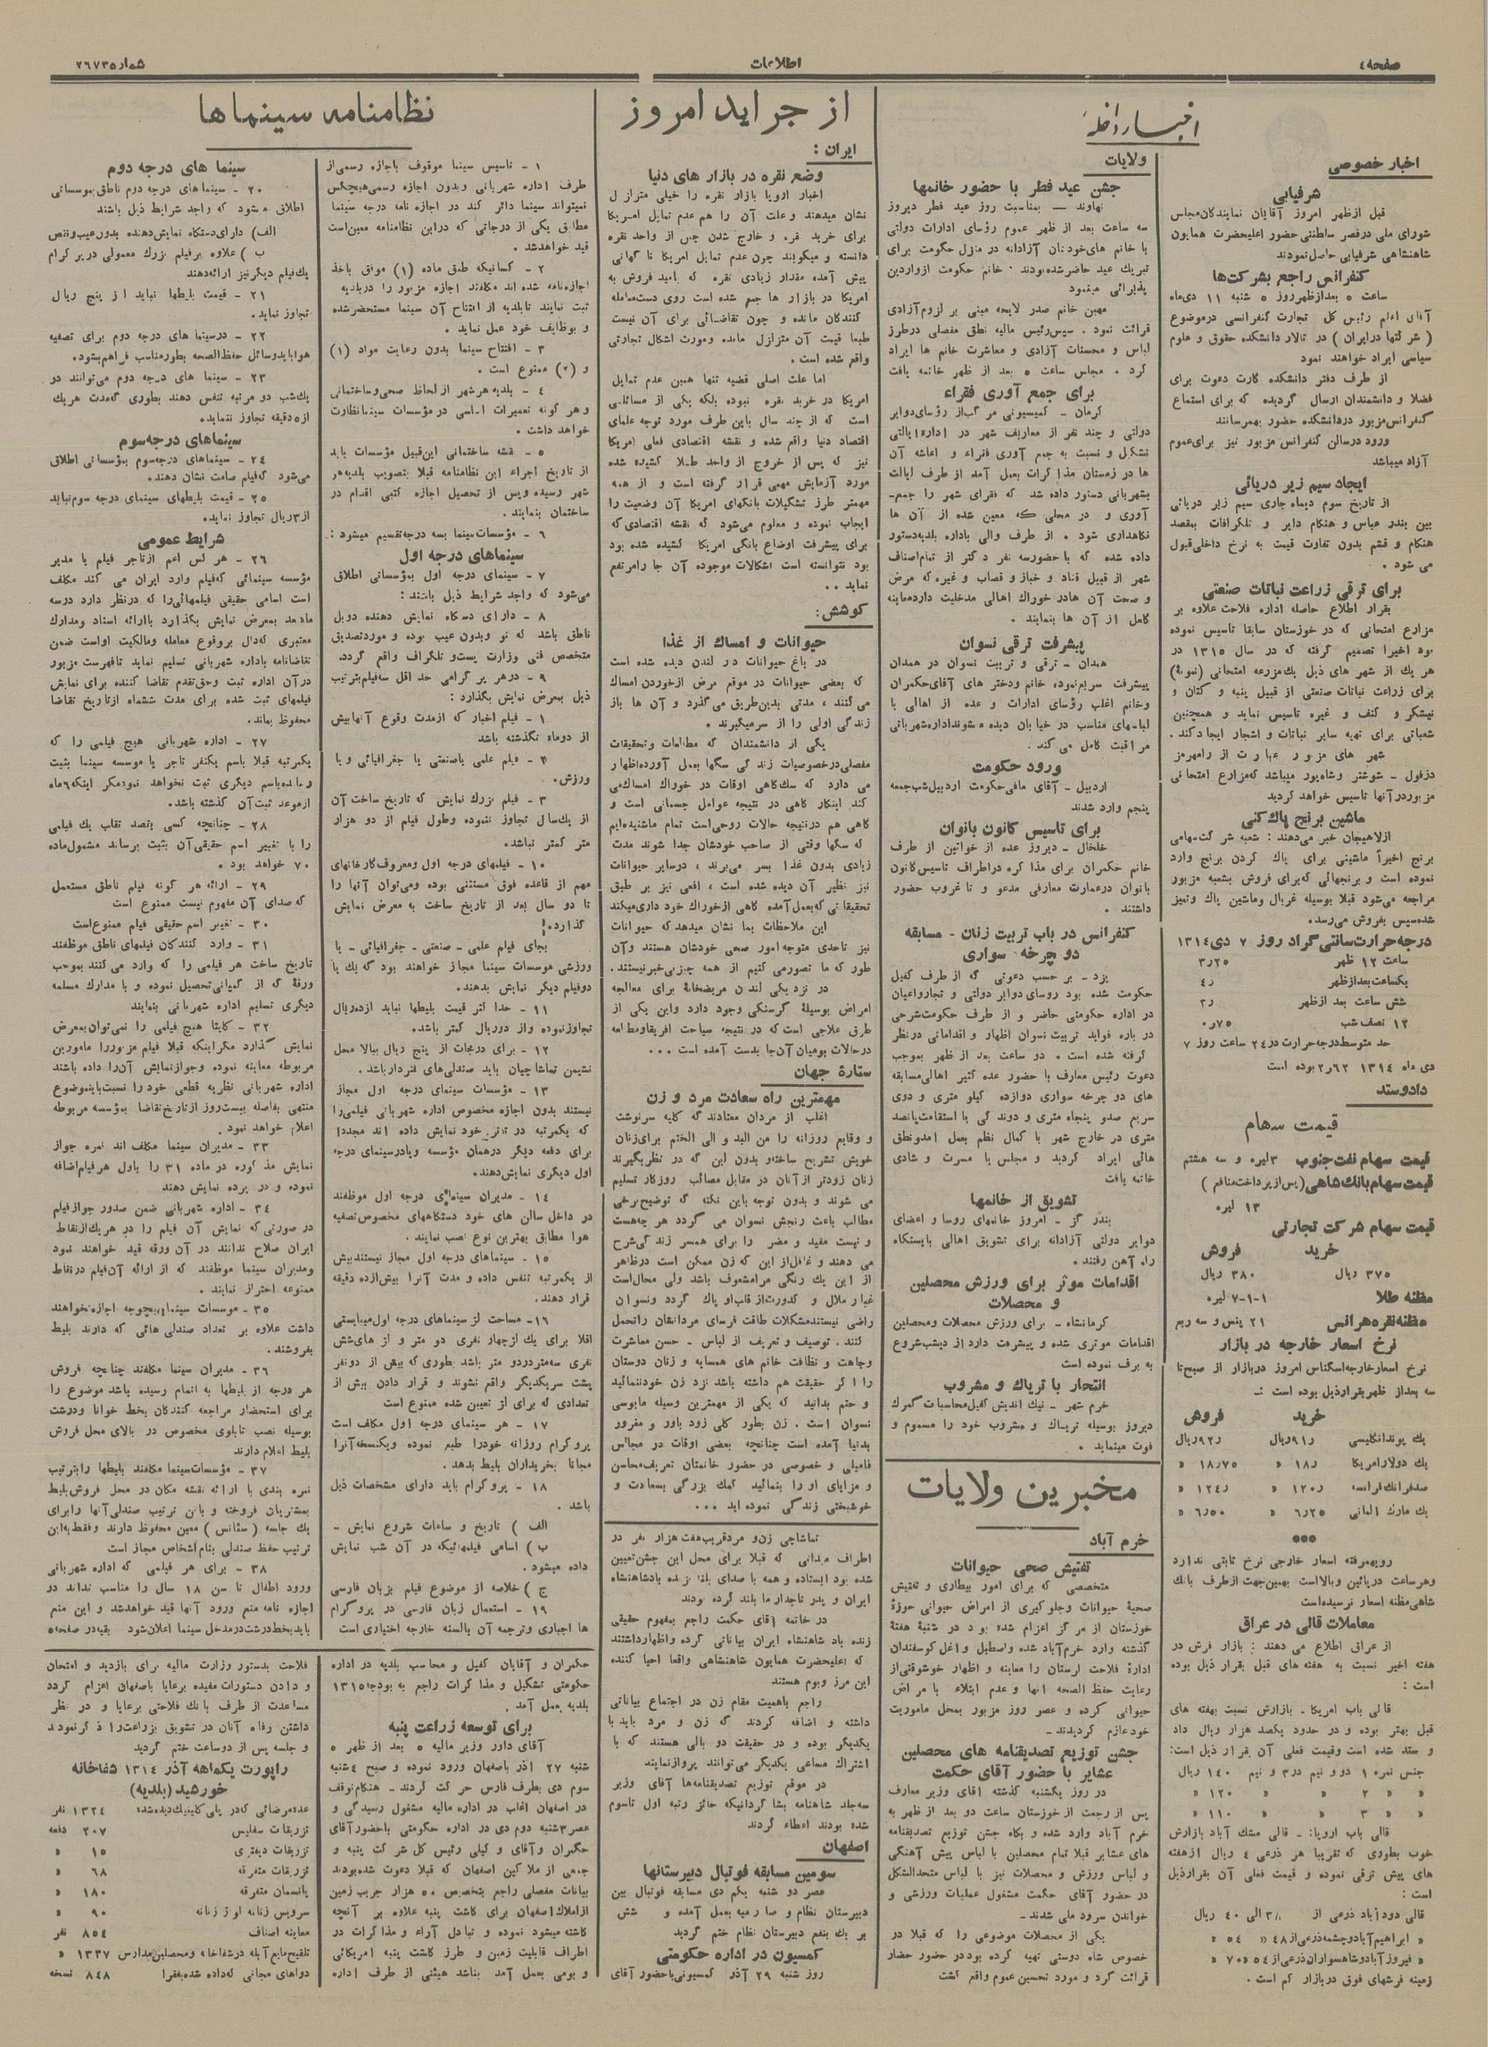 صفحه ٤
اطلاعات
شماره ٢٦٧٣
اخبار داخله
اخبار خصوصی
شرفیابی
قبل از ظهر امروز آقایان نمایندگان مجلس
شورای ملی در قصر سلطنتی حضور اعلیحضرت همایون
شاهنشاهی شرفیابی حاصل نمودند
کنفرانس راجع بشرکت‌ها
ساعت ٥ بعد از ظهر روز ٥ شنبه ١١ دی‌ماه
آقای اعلم رئیس کل تجارت کنفرانسی در موضوع
( شرکتها در ایران ) در تالار دانشکده حقوق و علوم
سیاسی ایراد خواهند نمود
از طرف دفتر دانشکده کارت دعوت برای
فضلا و دانشمندان ارسال گردیده که برای استماع
کنفرانس مزبور در دانشکده حضور بهمرسانند
ورود در سالن کنفرانس مزبور نیز برای عموم
آزاد میباشد
ایجاد سیم زیر دریائی
از تاریخ سوم دیماه جاری سیم زیر دریائی
بین بندر عباس و هنگام دایر و تلگرافات بمقصد
هنگام و قشم بدون تفاوت قیمت به نرخ داخلی قبول
می شود .
برای ترقی زراعت نباتات صنعتی
بقرار اطلاع حاصله اداره فلاحت علاوه بر
مزارع امتحانی که در خوزستان سابقا تاسیس نموده
بود اخیرا تصمیم گرفته که در سال ١٣١٥ در
هر یک از شهر های ذیل یک مزرعه امتحانی (نمونهٔ)
برای زراعت نباتات صنعتی از قبیل پنبه و کتان و
نیشکر و کنف و غیره تاسیس نماید و همچنین
شعباتی برای تهیه سایر نباتات و اشجار ایجاد کند .
شهر های مزبور عبارت از رامهرمز
دزفول - شوشتر و شاه‌پور میباشد که مزارع امتحانی
مزبور در آنها تاسیس خواهد گردید
ماشین برنج پاک کنی
از لاهیجان خبر می‌دهند : شعبه شرکت سهامی
برنج اخیراً ماشینی برای پاک کردن برنج وارد
نموده است و برنجهائی که برای فروش بشعبه مزبور
مراجعه می‌شود قبلا بوسیله غربال و ماشین پاک و تمیز
شده سپس بفروش می‌رسد .
درجه حرارت سانتی گراد روز ٧ دی ١٣١٤
ساعت ١٢ ظهر ٣٫٢٥
یکساعت بعد از ظهر ٤٫
شش ساعت بعد از ظهر ٢٫
١٢ نصف شب ٠٫٧٥
حد متوسط درجه حرارت در ٢٤ ساعت روز ٧
دی ماه ١٣١٤ ٢٫٦٢ بوده است
داد و ستد
قیمت سهام
قیمت سهام نفت جنوب ٣ لیره و سه هشتم
قیمت سهام بانک شاهی (پس از پرداخت منافع )
١٣ لیره
قیمت سهام شرکت تجارتی
خرید فروش
٣٧٥ ریال ٣٨٠ ریال
مظنه طلا ١-١-٧ لیره
مظنه نقره هر انس ٢١ پنس و سه ربع
نرخ اسعار خارجه در بازار
نرخ اسعار خارجه اسکناس امروز در بازار از صبح تا
سه بعد از ظهر بقرار ذیل بوده است :-
خرید فروش
یک پوند انگلیسی ٩١٫ ریال ٩٢٫ ریال
یک دولار امریکا ١٨٫ « ١٨٫٧٥ «
صد فرانک فرانسه ١٢٠٫ « ١٢٤٫ «
یک مارک آلمانی ٦٫٢٥ « ٦٫٥٠ «
***
رویهمرفته اسعار خارجی نرخ ثابتی ندارد
و هر ساعت در پائین و بالا است بهمین جهت از طرف بانک
شاهی مظنه اسعار نرسیده است
معاملات قالی در عراق
از عراق اطلاع می دهند : بازار فرش در
هفته اخیر نسبت به هفته های قبل بقرار ذیل بوده
است :
قالی باب امریکا - بازارش نسبت بهفته های
قبل بهتر بوده و در حدود یکصد هزار ریال داد
و ستد شده است و قیمت فعلی آن بقرار ذیل است:
جنس نمره ١ دو و نیم در ٣ و نیم ١٤٠ ریال
« « ٢ « « ١٢٠ «
« « ٣ « « ١١٠ «
قالی باب اروپا : - قالی مشک آباد بازارش
خوب بطوری که تقریبا هر ذرعی ٤ ریال از هفته
های پیش ترقی نموده و قیمت فعلی آن بقرار ذیل
است :
قالی دود آباد ذرعی از ٣٨ الی ٤٠ ریال
« ابراهیم آباد و چشمه ذرعی از ٤٨ « ٥٤ «
« فیروز آباد و شاهسواران ذرعی از ٥٤ « ٧٠ «
زمینه فرشهای فوق در بازار کم است .
ولایات
جشن عید فطر با حضور خانمها
نهاوند — بمناسبت روز عید فطر دیروز
سه ساعت بعد از ظهر عموم رؤسای ادارات دولتی
با خانم های خودشان آزادانه در منزل حکومت برای
تبریک عید حاضر شده بودند . خانم حکومت از واردین
پذیرائی مینمود
مهین خانم صدر لایحه مبنی بر لزوم آزادی
قرائت نمود . سپس رئیس مالیه نطق مفصلی در طرز
لباس و محسنات آزادی و معاشرت خانم ها ایراد
کرد . مجلس ساعت ٥ بعد از ظهر خاتمه یافت
برای جمع آوری فقراء
کرمان - کمیسیونی مرکب از رؤسای دوایر
دولتی و چند نفر از معاریف شهر در اداره ایالتی
تشکیل و نسبت به جمع آوری فقراء و اعاشه آن
ها در زمستان مذاکرات بعمل آمد از طرف ایالت
بشهربانی دستور داده شد که فقرای شهر را جمع-
آوری و در محلی که معین شده از آن ها
نگاهداری شود . از طرف والی باداره بلدیه دستور
داده شده که با حضور سه نفر دکتر از تمام اصناف
شهر از قبیل قناد و خباز و قصاب و غیره که مرض
و صحت آن ها در خوراک اهالی مدخلیت دارد معاینه
کامل از آن ها بنمایند .
پیشرفت ترقی نسوان
همدان - ترقی و تربیت نسوان در همدان
پیشرفت سریع نموده خانم و دختر های آقای حکمران
و خانم اغلب رؤسای ادارات و عده از اهالی با
لباسهای مناسب در خیابان دیده میشوند اداره شهربانی
مراقبت کامل می کند .
ورود حکومت
اردبیل - آقای مافی حکومت اردبیل شب جمعه
پنجم وارد شدند
برای تاسیس کانون بانوان
خلخال - دیروز عده از خوانین از طرف
خانم حکمران برای مذاکره در اطراف تاسیس کانون
بانوان در عمارت معارفی مدعو و تا غروب حضور
داشتند .
کنفرانس در باب تربیت زنان - مسابقه
دو چرخه سواری
یزد - بر حسب دعوتی که از طرف کفیل
حکومت شده بود روسای دوایر دولتی و تجار و اعیان
در اداره حکومتی حاضر و از طرف حکومت شرحی
در باره فواید تربیت نسوان اظهار و اقداماتی در نظر
گرفته شده است . دو ساعت بعد از ظهر بموجب
دعوت رئیس معارف با حضور عده کثیر اهالی مسابقه
های دو چرخه سواری دوازده کیلو متری و دوی
سریع صد و پنجاه متری و دوندگی با استقامت پانصد
متری در خارج شهر با کمال نظم بعمل آمد و نطق
هائی ایراد گردید و مجلس با مسرت و شادی
خاتمه یافت
تشویق از خانمها
بندر گز - امروز خانمهای روسا و اعضای
دوایر دولتی آزادانه برای تشویق اهالی بایستگاه
راه آهن رفتند .
اقدامات موثر برای ورزش محصلین
و محصلات
کرمانشاه - برای ورزش محصلات و محصلین
اقدامات موثری شده و پیشرفت دارد از دیشب شروع
به برف نموده است
انتحار با تریاک و مشروب
خرم شهر - نیک اندیش کفیل محاسبات گمرک
دیروز بوسیله تریاک و مشروب خود را مسموم و
فوت مینماید .
مخبرین ولایات
خرم آباد
تفتیش صحی حیوانات
متخصصی که برای امور بیطاری و تفتیش
صحیهٔ حیوانات و جلوگیری از امراض حیوانی حوزهٔ
خوزستان از مرکز اعزام شده بود در شنبهٔ هفتهٔ
گذشته وارد خرم آباد شده و اصطبل و اغل گوسفندان
ادارهٔ فلاحت لرستان را معاینه و اظهار خوشوقتی از
رعایت حفظ الصحه آنها و عدم ابتلاء با مراض
حیوانی کرده و عصر روز مزبور بمحل ماموریت
خود عازم گردیدند -
جشن توزیع تصدیقنامه های محصلین
عشایر با حضور آقای حکمت
در روز یکشنبه گذشته آقای وزیر معارف
پس از رجعت از خوزستان ساعت دو بعد از ظهر به
خرم آباد وارد شده و بگاه جشن توزیع تصدیقنامه
های عشایر قبلا تمام محصلین با لباس پیش آهنگی
و لباس ورزش و محصلات نیز با لباس متحد الشکل
در حضور آقای حکمت مشغول عملیات ورزشی و
خواندن سرود ملی شدند -
یکی از محصلات موضوعی را که قبلا در
خصوص شاه دوستی تهیه کرده بود در حضور حضار
قرائت کرد و مورد تحسین عموم واقع گشت
از جراید امروز
ایران :
وضع نقره در بازار های دنیا
اخبار اروپا بازار نقره را خیلی متزلزل
نشان میدهند و علت آن را هم عدم تمایل امریکا
برای خرید نقره و خارج شدن چین از واحد نقره
دانسته و میگویند چون عدم تمایل امریکا ناگهانی
پیش آمده مقدار زیادی نقره که بامید فروش به
امریکا در بازار ها جمع شده است روی دست معامله
کنندگان مانده و چون تقاضائی برای آن نیست
طبعا قیمت آن متزلزل مانده و مورث اشکال تجارتی
واقع شده است .
اما علت اصلی قضیه تنها همین عدم تمایل
امریکا در خرید نقره نبوده بلکه یکی از مسائلی
است که از چند سال باین طرف مورد توجه علمای
اقتصاد دنیا واقع شده و نقشه اقتصادی فعلی امریکا
نیز که پس از خروج از واحد طلا کشیده شده
مورد آزمایش مهمی قرار گرفته است و از همه
مهمتر طرز تشکیلات بانکهای امریکا آن وضعیت را
ایجاب نموده و معلوم می‌شود که نقشه اقتصادی که
برای پیشرفت اوضاع بانکی امریکا کشیده شده بود
بود نتوانسته است اشکالات موجوده آن جا را مرتفع
نماید . .
کوشش:
حیوانات و امساک از غذا
در باغ حیوانات در لندن دیده شده است
که بعضی حیوانات در موقع مرض از خوردن امساک
می‌کنند ، مدتی بدین‌طریق می‌گذرد و آن ها باز
زندگی اولی را از سر میگیرند .
یکی از دانشمندان که مطالعات و تحقیقات
مفصلی در خصوصیات زندگی سگها بعمل آورده اظهار
می دارد که سگ گاهی اوقات در خوراک امساک می
کند اینکار گاهی در نتیجه عوامل جسمانی است و
گاهی هم در نتیجه حالات روحی است تمام ماشنیده‌ایم
که سگها وقتی از صاحب خودشان جدا شوند مدت
زیادی بدون غذا بسر می‌برند ، در سایر حیوانات
نیز نظیر آن دیده شده است ، افعی نیز بر طبق
تحقیقاتی که بعمل آمده گاهی از خوراک خود داری میکند
این ملاحظات بما نشان میدهد که حیوانات
نیز تاحدی متوجه امور صحی خودشان هستند و آن
طور که ما تصور می کنیم از همه چیز بی‌خبر نیستند .
در نزدیکی لندن مریضخانهٔ برای معالجه
امراض بوسیلهٔ گرسنگی وجود دارد و این یکی از
طرق علاجی است که در نتیجه سیاحت افریقا و مطالعه
در حالات بومیان آن جا بدست آمده است . . .
ستارهٔ جهان
مهمترین راه سعادت مرد و زن
اغلب از مردان معتادند که کلیه سرنوشت
و وقایع روزانه را من البدو الی الختم برای زنان
خویش تشریح ساخته و بدون این که در نظر بگیرند
زنان زودتر از آنان در مقابل مصائب روزگار تسلیم
می شوند و بدون توجه باین نکته که توضیح برخی
مطالب باعث رنجش نسوان می گردد هر چه هست
و نیست مفید و مضر را برای همسر زندگی شرح
می دهند و غافل از این که زن ممکن است در ظاهر
از این یک رنگی مرد مشعوف باشد ولی محال است
غبار ملال و کدورت از قلب او پاک گردد و نسوان
راضی نیستند مشکلات طاقت فرسای مردانشان را تحمل
کنند . توصیف و تعریف از لباس - حسن معاشرت
وجاهت و نظافت خانم های همسایه و زنان دوستان
را اگر حقیقت هم داشته باشد نزد زن خود ننمائید
و حتم بدانید که یکی از مهمترین وسیله مایوسی
نسوان است . زن بطور کلی زود باور و مغرور
بدنیا آمده است چنانچه بعضی اوقات در مجالس
فامیلی و خصوصی در حضور خانمتان تعریف محاسن
و مزایای او را بنمائید کمک بزرگی بسعادت و
خوشبختی زندگی نموده اید . . .
تماشاچی زن و مرد قریب هفت هزار نفر در
اطراف میدانی که قبلا برای محل این جشن تعیین
شده بود ایستاده و همه با صدای بلند زنده باد شاهنشاه
ایران و پدر تاجدار ما بلند کرده بودند
در خاتمه آقای حکمت راجع بمفهوم حقیقی
زنده باد شاهنشاه ایران بیاناتی کرده و اظهار داشتند
که اعلیحضرت همایون شاهنشاهی واقعا احیا کننده
این مرز و بوم هستند
راجع باهمیت مقام زن در اجتماع بیاناتی
داشته و اضافه کردند که زن و مرد باید با
یکدیگر بوده و در حقیقت دو بالی هستند که با
اشتراک مساعی یکدیگر می‌توانند پرواز نمایند
در موقع توزیع تصدیقنامه‌ها آقای وزیر
سه جلد شاهنامه بشاگردانیکه حائز رتبه اول تاسوم
شده بودند اعطاء کردند
اصفهان
سومین مسابقه فوتبال دبیرستانها
عصر دو شنبه یکم دی مسابقه فوتبال بین
دبیرستان نظام و صارمیه بعمل آمده و شش
بر یک بنفع دبیرستان نظام ختم گردید
کمسیون در اداره حکومتی
روز شنبه ٢٩ آذر کمسیونی با حضور آقای
نظامنامه سینماها
١ - تاسیس سینما موقوف باجازه رسمی از
طرف اداره شهربانی و بدون اجازه رسمی هیچکس
نمیتواند سینما دائر کند در اجازه نامه درجه سینما
مطابق یکی از درجاتی که در این نظامنامه معین است
قید خواهد شد .
٢ - کسانیکه طبق ماده (١) موفق باخذ
اجازه نامه شده اند مکلفند اجازه مزبور را در بلدیه
ثبت نمایند تا بلدیه از افتتاح آن سینما مستحضر شده
و بوظایف خود عمل نماید .
٣ - افتتاح سینما بدون رعایت مواد (١)
و (٢) ممنوع است .
٤ - بلدیه هر شهر از لحاظ صحی و ساختمانی
و هر گونه تعمیرات اساسی در مؤسسات سینما نظارت
خواهد داشت .
٥ - نقشه ساختمانی این قبیل مؤسسات باید
از تاریخ اجراء این نظامنامه قبلا بتصویب بلدیه هر
شهر رسیده و پس از تحصیل اجازه کتبی اقدام در
ساختمان بنمایند .
٦ - مؤسسات سینما بسه درجه تقسیم میشود :
سینماهای درجه اول
٧ - سینمای درجه اول بمؤسساتی اطلاق
می‌شود که واجد شرایط ذیل باشند :
٨ - دارای دستگاه نمایش دهنده دوبل
ناطق باشد که نو و بدون عیب بوده و مورد تصدیق
متخصص فنی وزارت پست و تلگراف واقع گردد.
٩ - در هر پرگرامی حد اقل سه فیلم بترتیب
ذیل بمعرض نمایش بگذارد :
١ - فیلم اخبار که از مدت وقوع آنها بیش
از دو ماه نگذشته باشد
٢ - فیلم علمی یا صنعتی یا جغرافیائی و یا
ورزش .
٣ - فیلم بزرگ نمایش که تاریخ ساخت آن
از یک سال تجاوز ننموده و طول فیلم از دو هزار
متر کمتر نباشد .
١٠ - فیلمهای درجه اول و معروف کارخانهای
مهم از قاعده فوق مستثنی بوده و می‌توان آنها را
تا دو سال بعد از تاریخ ساخت به معرض نمایش
گذارد.
بجای فیلم علمی - صنعتی - جغرافیائی - یا
ورزشی موسسات سینما مجاز خواهند بود که یک یا
دو فیلم دیگر نمایش بدهند .
١١ - حدا کثر قیمت بلیطها نباید از ده ریال
تجاوز نموده و از دو ریال کمتر باشد .
١٢ - برای درجات از پنج ریال ببالا محل
نشیمن تماشاچیان باید صندلی‌های فنر دار باشد .
١٣ - مؤسسات سینمای درجه اول مجاز
نیستند بدون اجازه مخصوص اداره شهربانی فیلمی را
که یکمرتبه در تئاتر خود نمایش داده اند مجددا
برای دفعه دیگر در همان مؤسسه و یا در سینمای درجه
اول دیگری نمایش دهند .
١٤ - مدیران سینمای درجه اول موظفند
در داخل سالن های خود دستگاههای مخصوص تصفیه
هوا مطابق بهترین نوع نصب نمایند .
١٥ - سینماهای درجه اول مجاز نیستند بیش
از یکمرتبه تنفس داده و مدت آنرا بیش از ده دقیقه
قرار دهند .
١٦- مساحت لژ سینماهای درجه اول میبایستی
اقلا برای یک لژ چهار نفری دو متر و لژهای شش
نفری سه متر در دو متر باشد بطوری که بیش از دو نفر
پشت سر یکدیگر واقع نشوند و قرار دادن بیش از
تعدادی که برای لژ تعیین شده ممنوع است
١٧ - هر سینمای درجه اول مکلف است
پروگرام روزانه خود را طبع نموده و یکنسخه آنرا
مجانا بخریداران بلیط بدهد .
١٨ - پروگرام باید دارای مشخصات ذیل
باشد .
الف ) تاریخ و ساعات شروع نمایش -
ب ) اسامی فیلمهائیکه در آن شب نمایش
داده میشود .
ج ) خلاصه از موضوع فیلم بزبان فارسی
١٩ - استعمال زبان فارسی در پروگرام
ها اجباری و ترجمه آن بالسنه خارجه اختیاری است
سینما های درجه دوم
٢٠ - سینماهای درجه دوم ناطق بموسساتی
اطلاق میشود که واجد شرایط ذیل باشند
الف) دارای دستگاه نمایش دهنده بدون عیب و نقص
ب ) علاوه بر فیلم بزرگ معمولی در پرگرام
یک فیلم دیگر نیز ارائه دهند
٢١ - قیمت بلیطها نباید از پنج ریال
تجاوز نماید .
٢٢ - در سینما های درجه دوم برای تصفیه
هوا باید وسائل حفظ الصحه بطور مناسب فراهم بشود .
٢٣ - سینما های درجه دوم می‌توانند در
یک شب دو مرتبه تنفس دهند بطوری که مدت هر یک
از ده دقیقه تجاوز ننماید .
سینماهای درجه سوم
٢٤ - سینماهای درجه سوم بمؤسساتی اطلاق
می‌شود که فیلم صامت نشان دهند .
٢٥ - قیمت بلیطهای سینمای درجه سوم نباید
از ٣ ریال تجاوز نماید .
شرایط عمومی
٢٦ - هر کس اعم از تاجر فیلم یا مدیر
مؤسسه سینمائی که فیلم وارد ایران می کند مکلف
است اسامی حقیقی فیلمهائی را که در نظر دارد در سه
ماه بعد بمعرض نمایش بگذارد با ارائه اسناد و مدارک
معتبری که دال بر وقوع معامله و مالکیت اوست ضمن
تقاضانامه باداره شهربانی تسلیم نماید تا فهرست مزبور
در آن اداره ثبت و حق تقدم تقاضا کننده برای نمایش
فیلمهای ثبت شده برای مدت ششماه از تاریخ تقاضا
محفوظ بماند .
٢٧ - اداره شهربانی هیچ فیلمی را که
یکمرتبه قبلا باسم یکنفر تاجر یا موسسه سینما بثبت
رسانده باسم دیگری ثبت نخواهد نمود مگر اینکه ٦ ماه
از موعد ثبت آن گذشته باشد .
٢٨ - چنانچه کسی بقصد تقلب یک فیلمی
را با تغییر اسم حقیقی آن بثبت برساند مشمول ماده
٧٠ خواهد بود .
٢٩ - ارائه هر گونه فیلم ناطق مستعمل
که صدای آن مفهوم نیست ممنوع است
٣٠ - تغییر اسم حقیقی فیلم ممنوع است
٣١ - وارد کنندگان فیلمهای ناطق موظفند
تاریخ ساخت هر فیلمی را که وارد می کنند بموجب
ورقهٔ که از کمپانی تحصیل نموده و با مدارک مسلمه
دیگری تسلیم اداره شهربانی بنمایند
٣٢ - کلیتا هیچ فیلمی را نمی‌توان بمعرض
نمایش گذارد مگر اینکه قبلا فیلم مزبور را مامورین
مربوطه معاینه نموده و جواز نمایش آن را داده باشند
اداره شهربانی نظریه قطعی خود را نسبت باینموضوع
منتهی بفاصله بیست روز از تاریخ تقاضا بمؤسسه مربوطه
اعلام خواهد نمود .
٣٣ - مدیران سینما مکلف اند نمره جواز
نمایش مذکوره در ماده ٣١ را باول هر فیلم اضافه
نموده و در پرده نمایش دهند
٣٤ - اداره شهربانی ضمن صدور جواز فیلم
در صورتی که نمایش آن فیلم را در هر یک از نقاط
ایران صلاح ندانند در آن ورقه قید خواهند نمود
و مدیران سینما موظفند که از ارائه آن فیلم در نقاط
ممنوعه احتراز نمایند .
٣٥ - موسسات سینما بهیچوجه اجازه نخواهند
داشت علاوه بر تعداد صندلی هائی که دارند بلیط
بفروشند .
٣٦ - مدیران سینما مکلفند چنانچه فروش
هر درجه از بلیطها به اتمام رسیده باشد موضوع را
برای استحضار مراجعه کنندگان بخط خوانا و درشت
بوسیله نصب تابلوی مخصوص در بالای محل فروش
بلیط اعلام دارند
٣٧ - مؤسسات سینما مکلفند بلیطها را بترتیب
نمره بندی با ارائه نقشه مکان در محل فروش بلیط
بمشتریان فروخته و باین ترتیب صندلی آنها را برای
یک جلسه ( سئانس ) معین محفوظ دارند و فقط به این
ترتیب حفظ صندلی بنام اشخاص مجاز است
٣٨ - برای هر فیلمی که اداره شهربانی
ورود اطفال تا سن ١٨ سال را مناسب نداند در
اجازه نامه منع ورود آنها قید خواهد شد و این منع
باید بخط درشت در مدخل سینما اعلان شود بقیه در صفحه ٥
حکمران و آقایان کفیل و محاسب بلدیه در اداره
حکومتی تشکیل و مذاکرات راجع به بودجه ١٣١٥
بلدیه بعمل آمد .
برای توسعه زراعت پنبه
آقای داور وزیر مالیه ٥ بعد از ظهر ٥
شنبه ٢٧ آذر باصفهان ورود نموده و صبح ٤ شنبه
سوم دی بطرف فارس حرکت کردند - هنگام توقف
در اصفهان اغلب در اداره مالیه مشغول رسیدگی و
عصر ٣ شنبه دوم دی در اداره حکومتی با حضور آقای
حکمران و آقای وکیلی رئیس کل شرکت پنبه و
جمعی از ملاکین اصفهان که قبلا دعوت شده بودند
بیانات مفصلی راجع بتخصیص ٥٠ هزار جریب زمین
از املاک اصفهان برای کاشت پنبه علاوه بر آنچه
کاشته میشود نموده و تبادل آراء و مذاکرات در
اطراف قابلیت زمین و طرز کاشت پنبه امریکائی
و بومی بعمل آمد بناشد هیئتی از طرف اداره
فلاحت بدستور وزارت مالیه برای بازدید و امتحان
و دادن دستورات مفیده برعایا باصفهان اعزام گردد
مساعدت از طرف بانک فلاحتی برعایا و در نظر
داشتن رفاه آنان در تشویق بزراعت را ذکر نمودند
و جلسه پس از دو ساعت ختم گردید
راپورت یکماهه آذر ١٣١٤ شفاخانه
خورشید (بلدیه)
عده مرضائی که در پلی کلینیک دیده شده ١٣٢٤ نفر
تزریقات سفلیس ٢٠٧ دفعه
تزریقات دیفتری ١٥ «
تزریقات متفرقه ٦٨ «
پانسمان متفرقه ١٨٠ «
سرویس زنانه اوژ زنانه ٩٠ «
معاینه اصناف ٨٥٤ نفر
تلقیح مایع آبله در شفاخانه و محصلین مدارس ١٣٣٧ «
دواهای مجانی که داده شده بفقرا ٨٤٨ نسخه